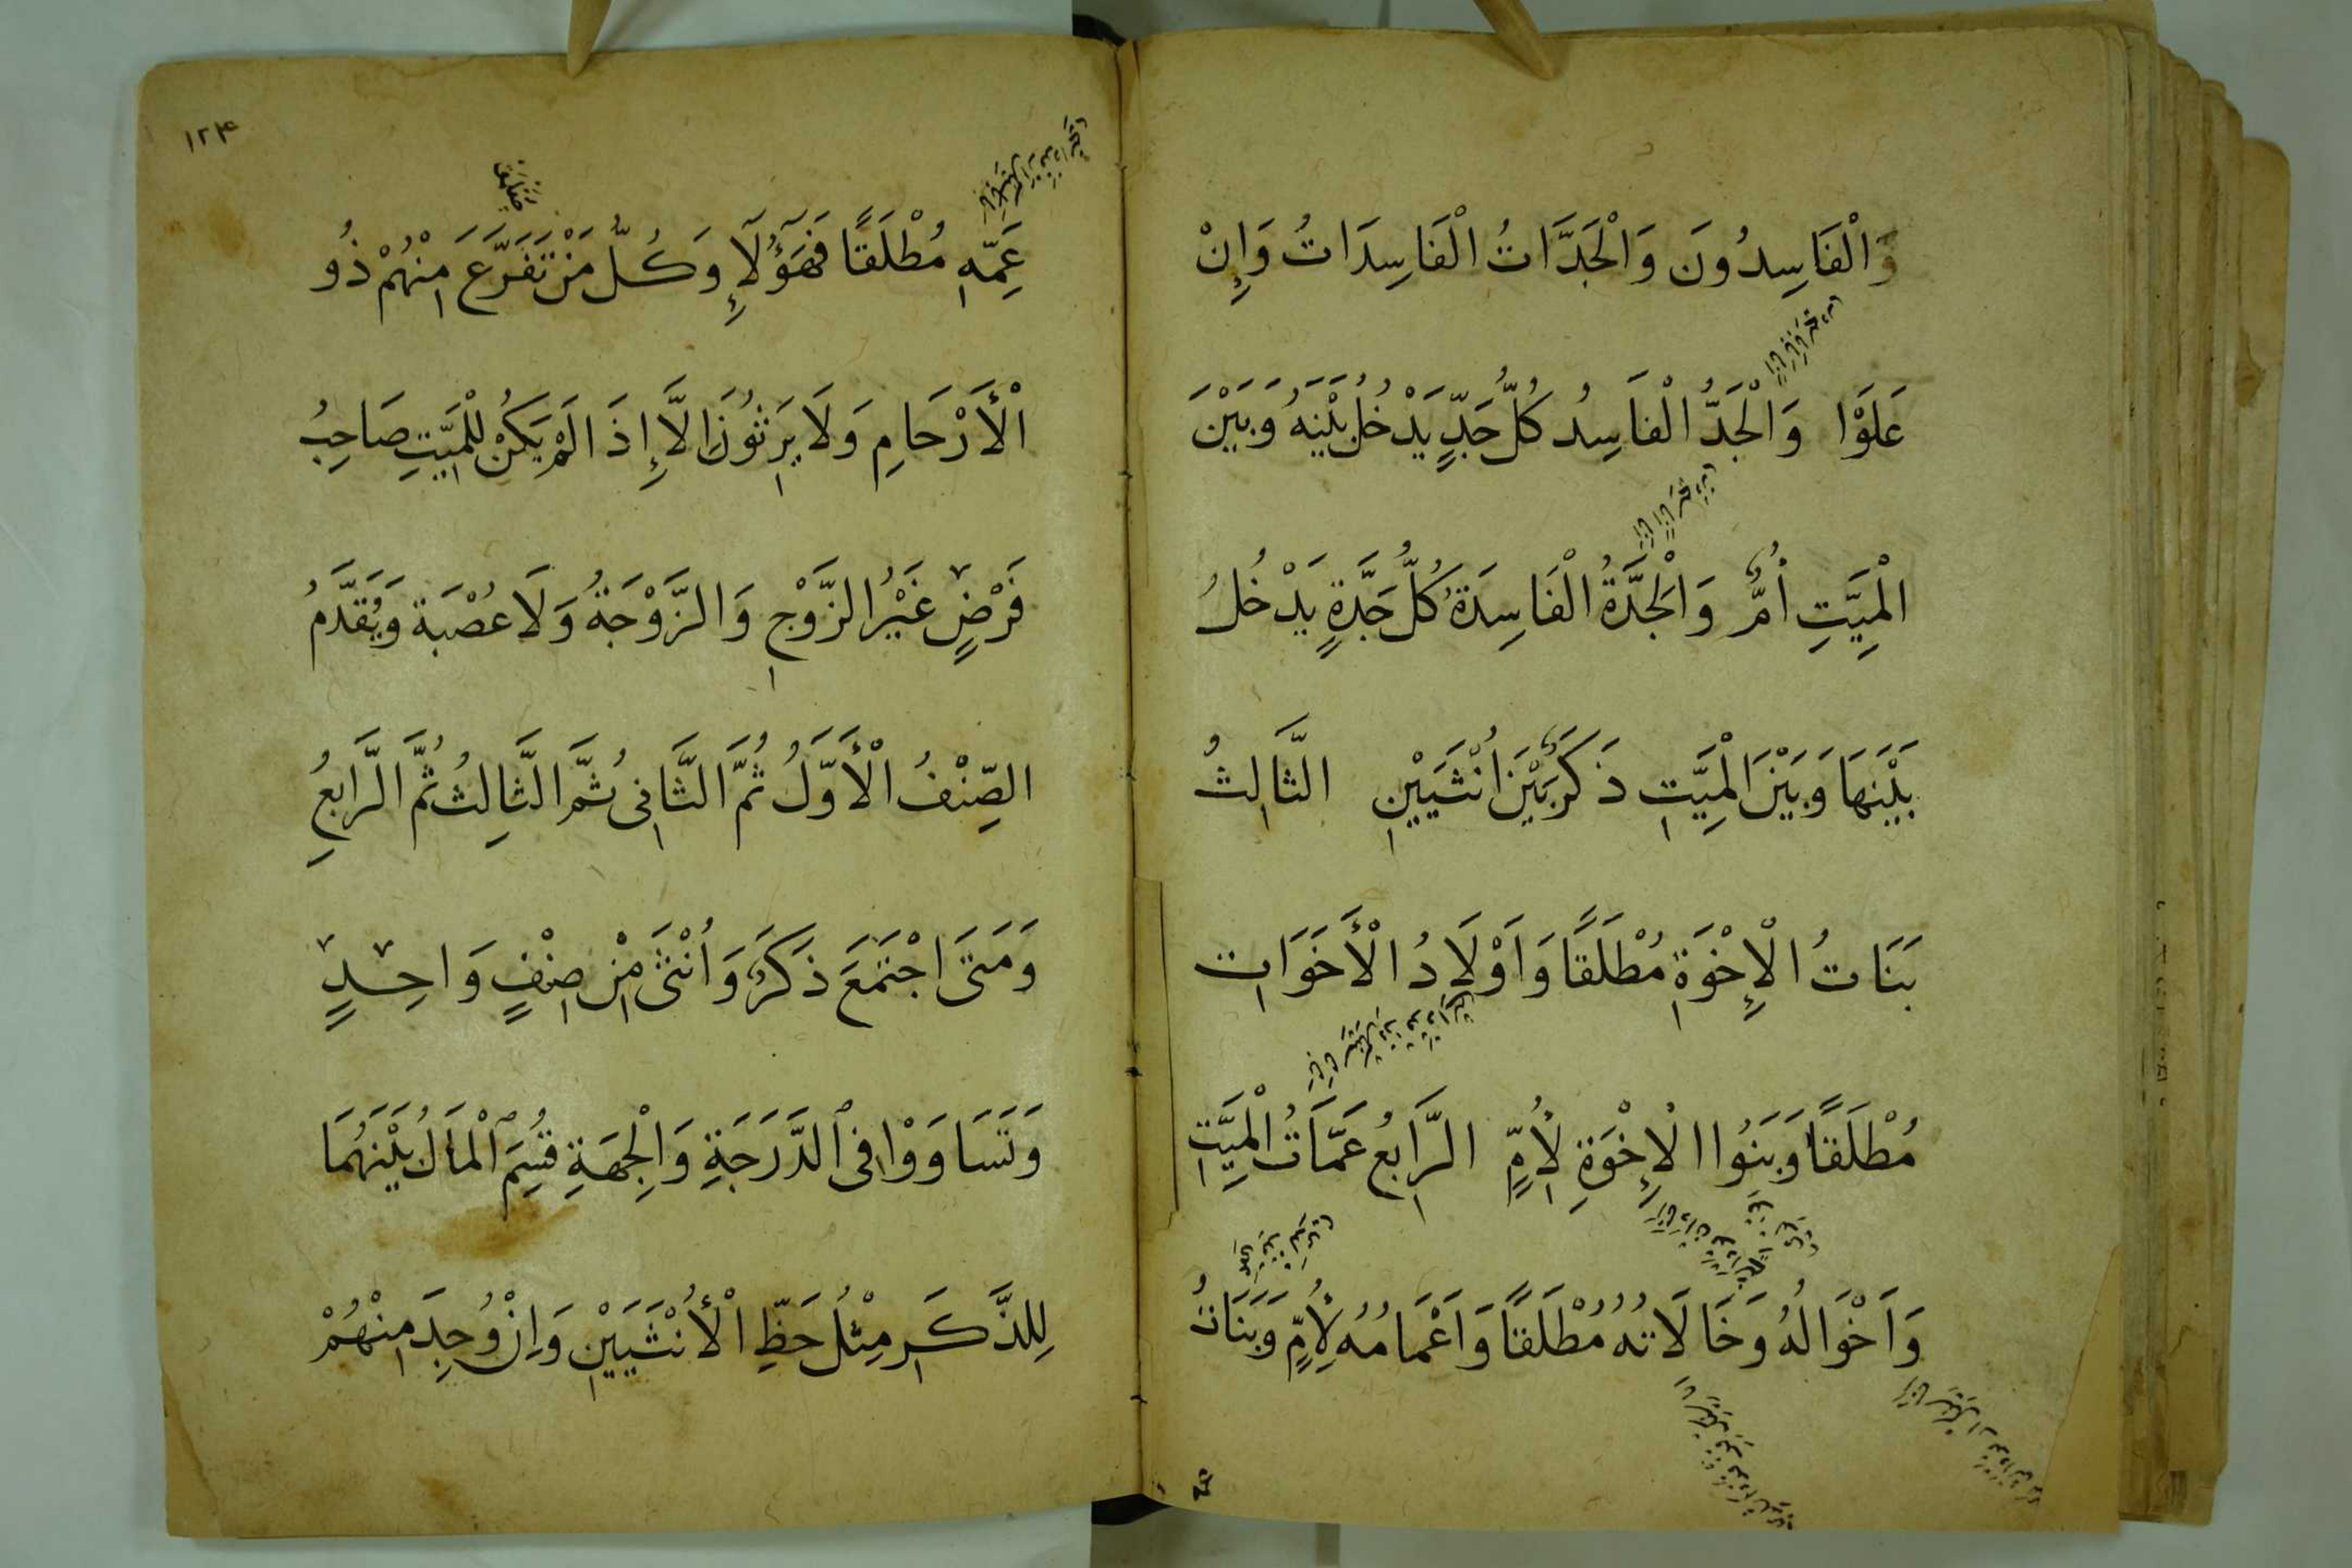 وَالْفَاسِدُونَ وَالْجَدَّاتُ الْفَاسِدَاتُ وَإِنْ
عَلَوْا وَالْجَدُّ الْفَاسِدُ كُلُّ جَدٍّ يَدْخُلُ بَيْنَهُ وَبَيْنَ
الْمَيِّتِ أُمٌّ وَالْجَدَّةُ الْفَاسِدَةُ كُلُّ جَدَّةٍ يَدْخُلُ
بَيْنَهَا وَبَيْنَ الْمَيِّتِ ذَكَرٌ بَيْنَ اُنْثَيَيْنِ الثَّالِثُ
بَنَاتُ الْإِخْوَةِ مُطْلَقًا وَاَوْلَادُ الْأَخَوَاتِ
مُطْلَقًا وَبَنُوا الْإِخْوَةِ لِأُمٍّ الرَّابِعُ عَمَّاتُ الْمَيِّتِ
وَاَخْوَالُهُ وَخَالَاتُهُ مُطْلَقًا وَاَعْمَامُهُ لِأُمٍّ وَبَنَاتُ
١٢٤
عَمِّهِ مُطْلَقًا فَهَؤُلَآءِ وَكُلُّ مَنْ تَفَرَّعَ مِنْهُمْ ذُو
الْأَرْحَامِ وَلَا يَرِثُونَ اِلَّا إِذَا لَمْ يَكُنْ لِلْمَيِّتِ صَاحِبُ
فَرْضٍ غَيْرُ الزَّوْجِ وَالزَّوْجَةُ وَلَا عُصْبَة وَيُقَدَّمُ
الصِّنْفُ الْأَوَّلُ ثُمَّ الثَّانِى ثُمَّ الثَّالِثُ ثُمَّ الرَّابِعُ
وَمَتَى اجْتَمَعَ ذَكَرٌ وَاُنْثَى مِنْ صِنْفٍ وَاحِدٍ
وَتَسَاوَوْا فِى الدَّرَجَةِ وَالْجِهَةِ قُسِمَ الْمَالُ بَيْنَهُمَا
لِلذَّكَرِ مِثْلُ حَظِّ الْأُنْثَيَيْنِ وَاِنْ وُجِدَ مِنْهُمْ